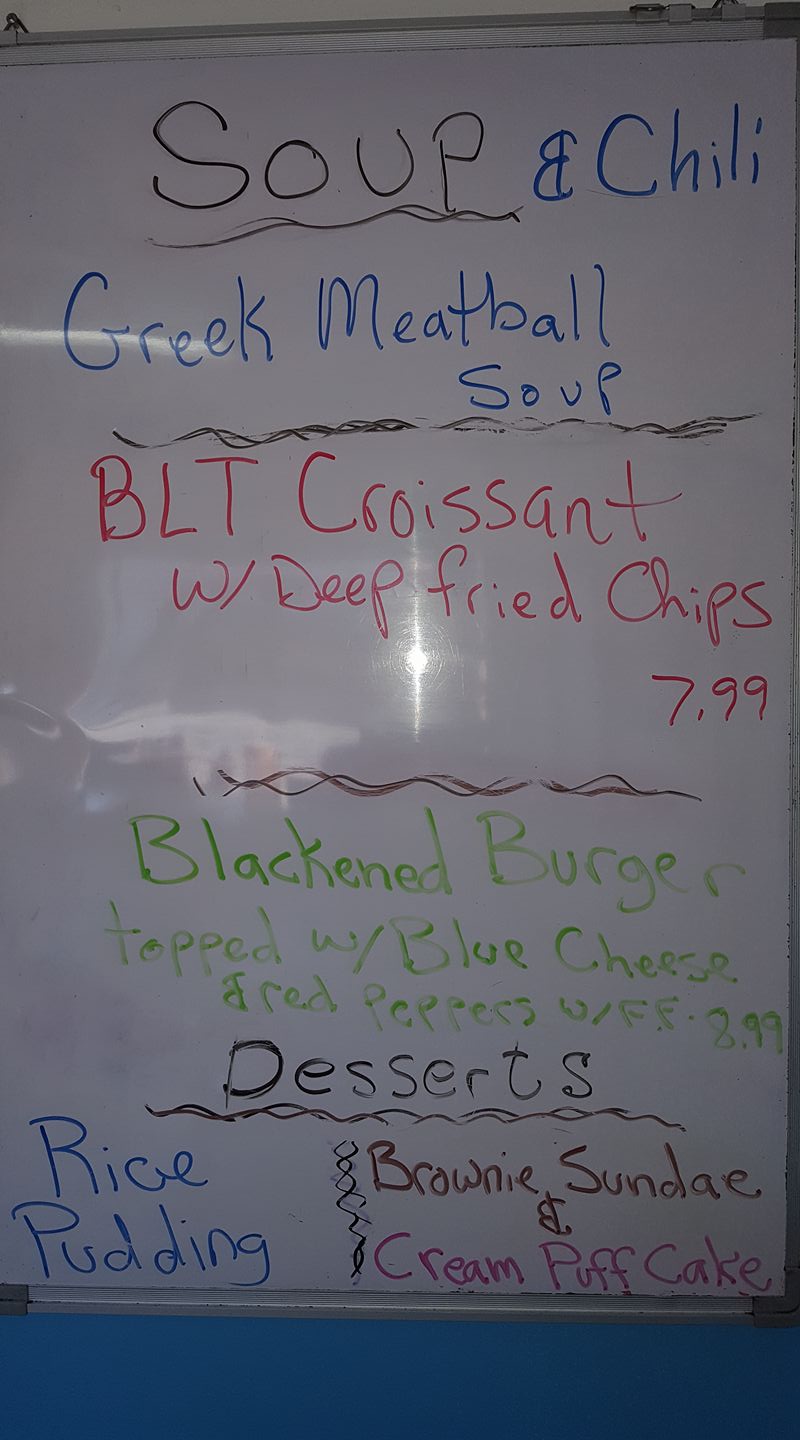 Soup & Chili
Greek Meatball
Soup
BLT Croissant
w/ Deep fried Chips
7.99
Blackened Burger
topped w/ Blue Cheese
& red Peppers w/ F.F. 8.99
Desserts
Rice
Pudding
Brownie Sundae
&
Cream Puff Cake